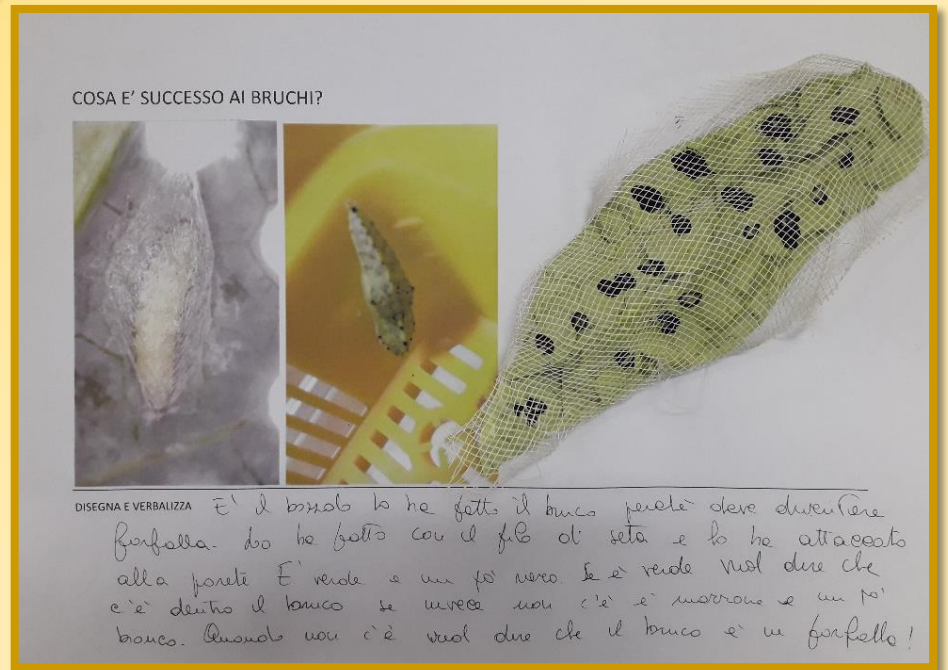 COSA E' SUCCESSO AI BRUCHI?
DISEGNA E VERBALIZZA E' il bozzolo lo ha fatto il bruco perchè deve diventare
farfalla. Lo ha fatto con il filo di seta e lo ha attaccato
alla parete E' verde e un pò nero. Se è verde vuol dire che
c'è dentro il bruco se invece non c'è è marrone e un pò
bianco. Quando non c'è vuol dire che il bruco è un farfalla!